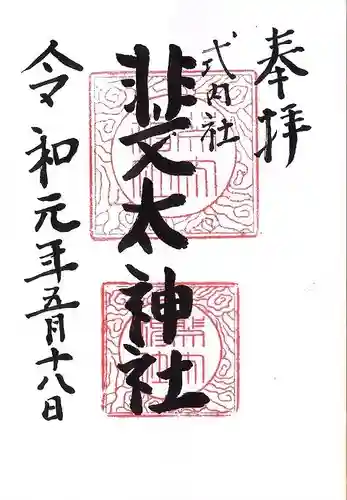 奉拝
式内社
斐太神社
令和元年五月十八日